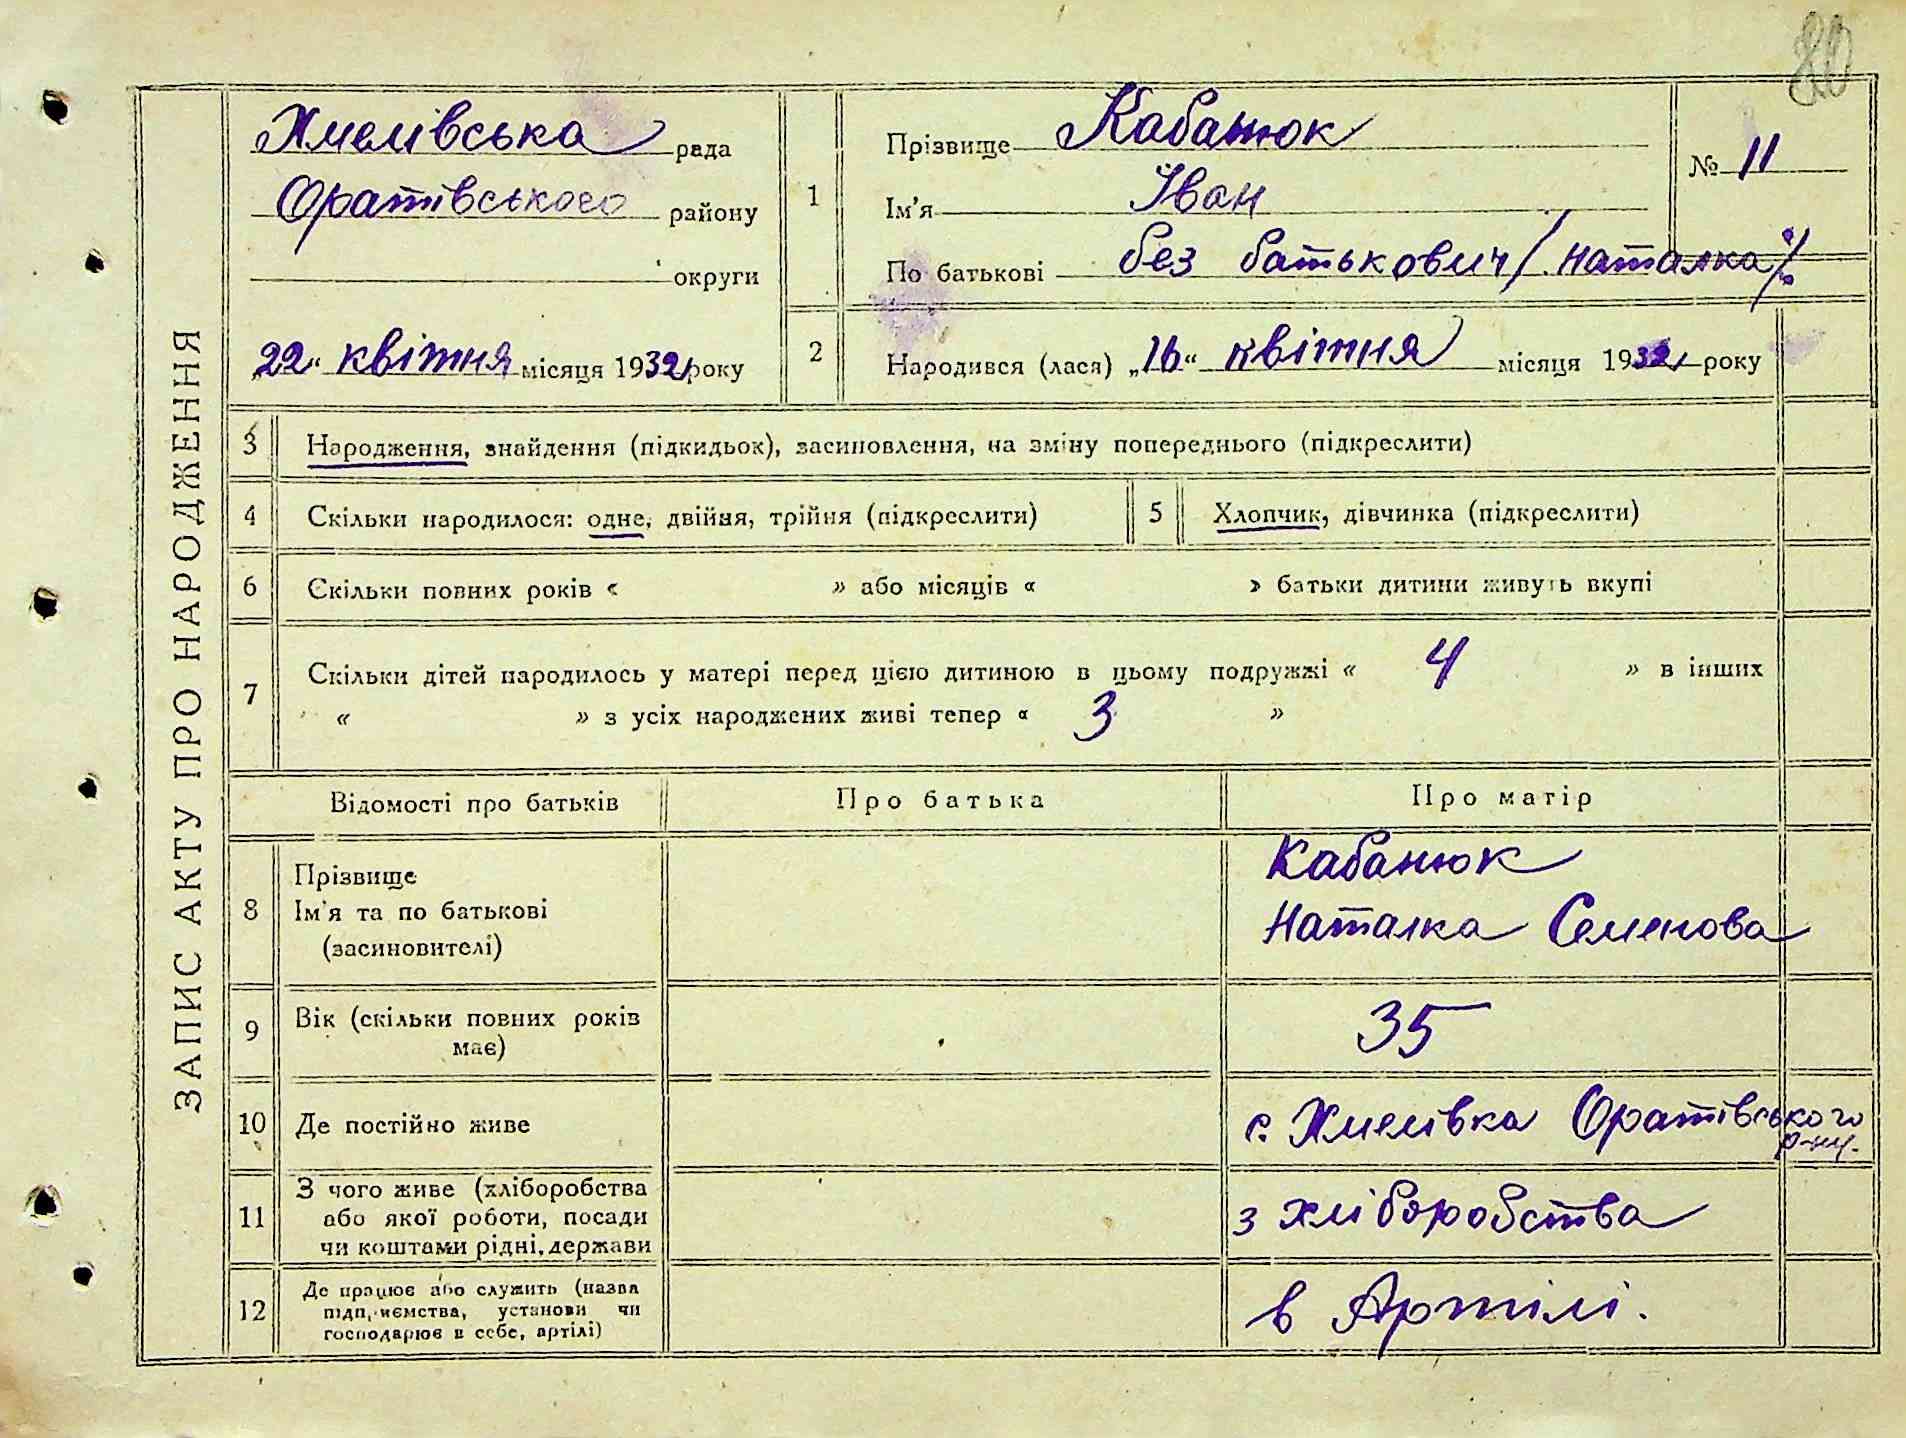 80
ЗАПИС АКТУ ПРО НАРОДЖЕННЯ
Хмелівська рада
Оратівського району
округи
„22“ квітня місяця 1932 року
1
Прізвище Кабанюк
Ім'я Іван
По батькові без батькович /Наталка/
№ 11
2
Народився (лася) „16“ квітня місяця 1932 року
3
Народження, знайдення (підкидьок), засиновлення, на зміну попереднього (підкреслити)
4
Скільки народилося: одне, двійня, трійня (підкреслити)
5
Хлопчик, дівчинка (підкреслити)
6
Скільки повних років « » або місяців « » батьки дитини живуть вкупі
7
Скільки дітей народилось у матері перед цією дитиною в цьому подружжі « 4 » в інших
« » з усіх народжених живі тепер « 3 »
Відомості про батьків
Про батька
Про матір
8
Прізвище
Ім'я та по батькові
(засиновителі)
Кабанюк
Наталка Семенова
9
Вік (скільки повних років
має)
35
10
Де постійно живе
с. Хмелівка Оратівського
р-ну.
11
З чого живе (хліборобства
або якої роботи, посади
чи коштами рідні, держави
з хліборобства
12
Де працює або служить (назва
підприємства, установи чи
господарює в себе, артілі)
в Артілі.